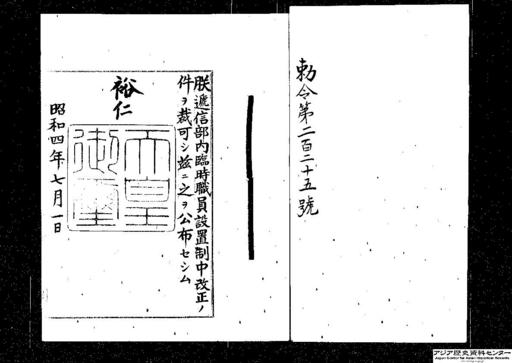 勅令第二百二十五號
朕遞信部内臨時職員設置制中改正ノ
件ヲ裁可シ玆ニ之ヲ公布セシム
裕仁
天皇
御璽
昭和四年七月一日
アジア歴史資料センター
Japan Center for Asian Historical Records